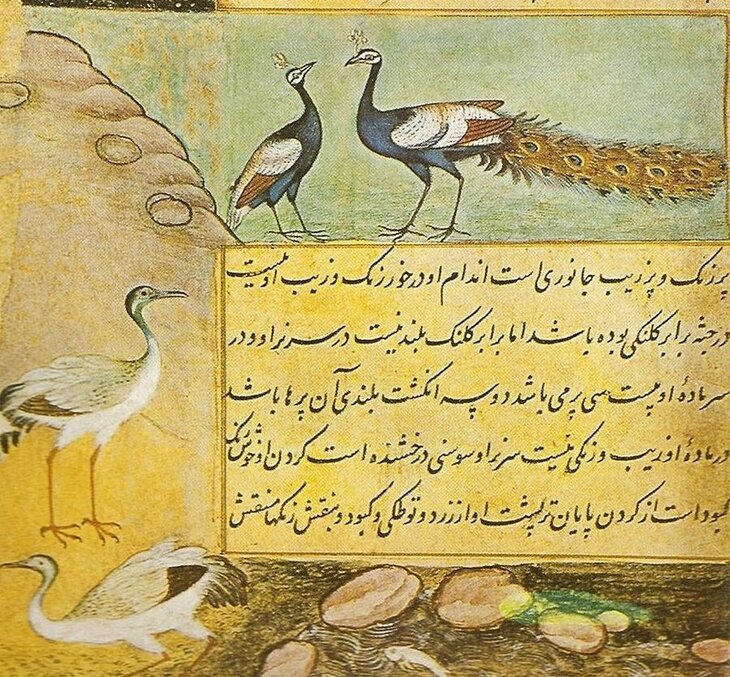 پر رنگ و پر زیب جانوری است اندام او در خور رنگ و زیب او نیست
در جثه برابر کلنکی بوده باشد اما برابر کلنک بلند نیست در سر نر او و در
سر ماده او بیست سی پر می باشد دو سه انکشت بلندی آن پر ها باشد
در ماده او زیب و رنکی نیست سر نر او سوسنی درخشنده است کردن او خوش رنک
کبود است از کردن پایان تر پشت او از زرد و توطکی و کبود و بنفش رنکها منقش